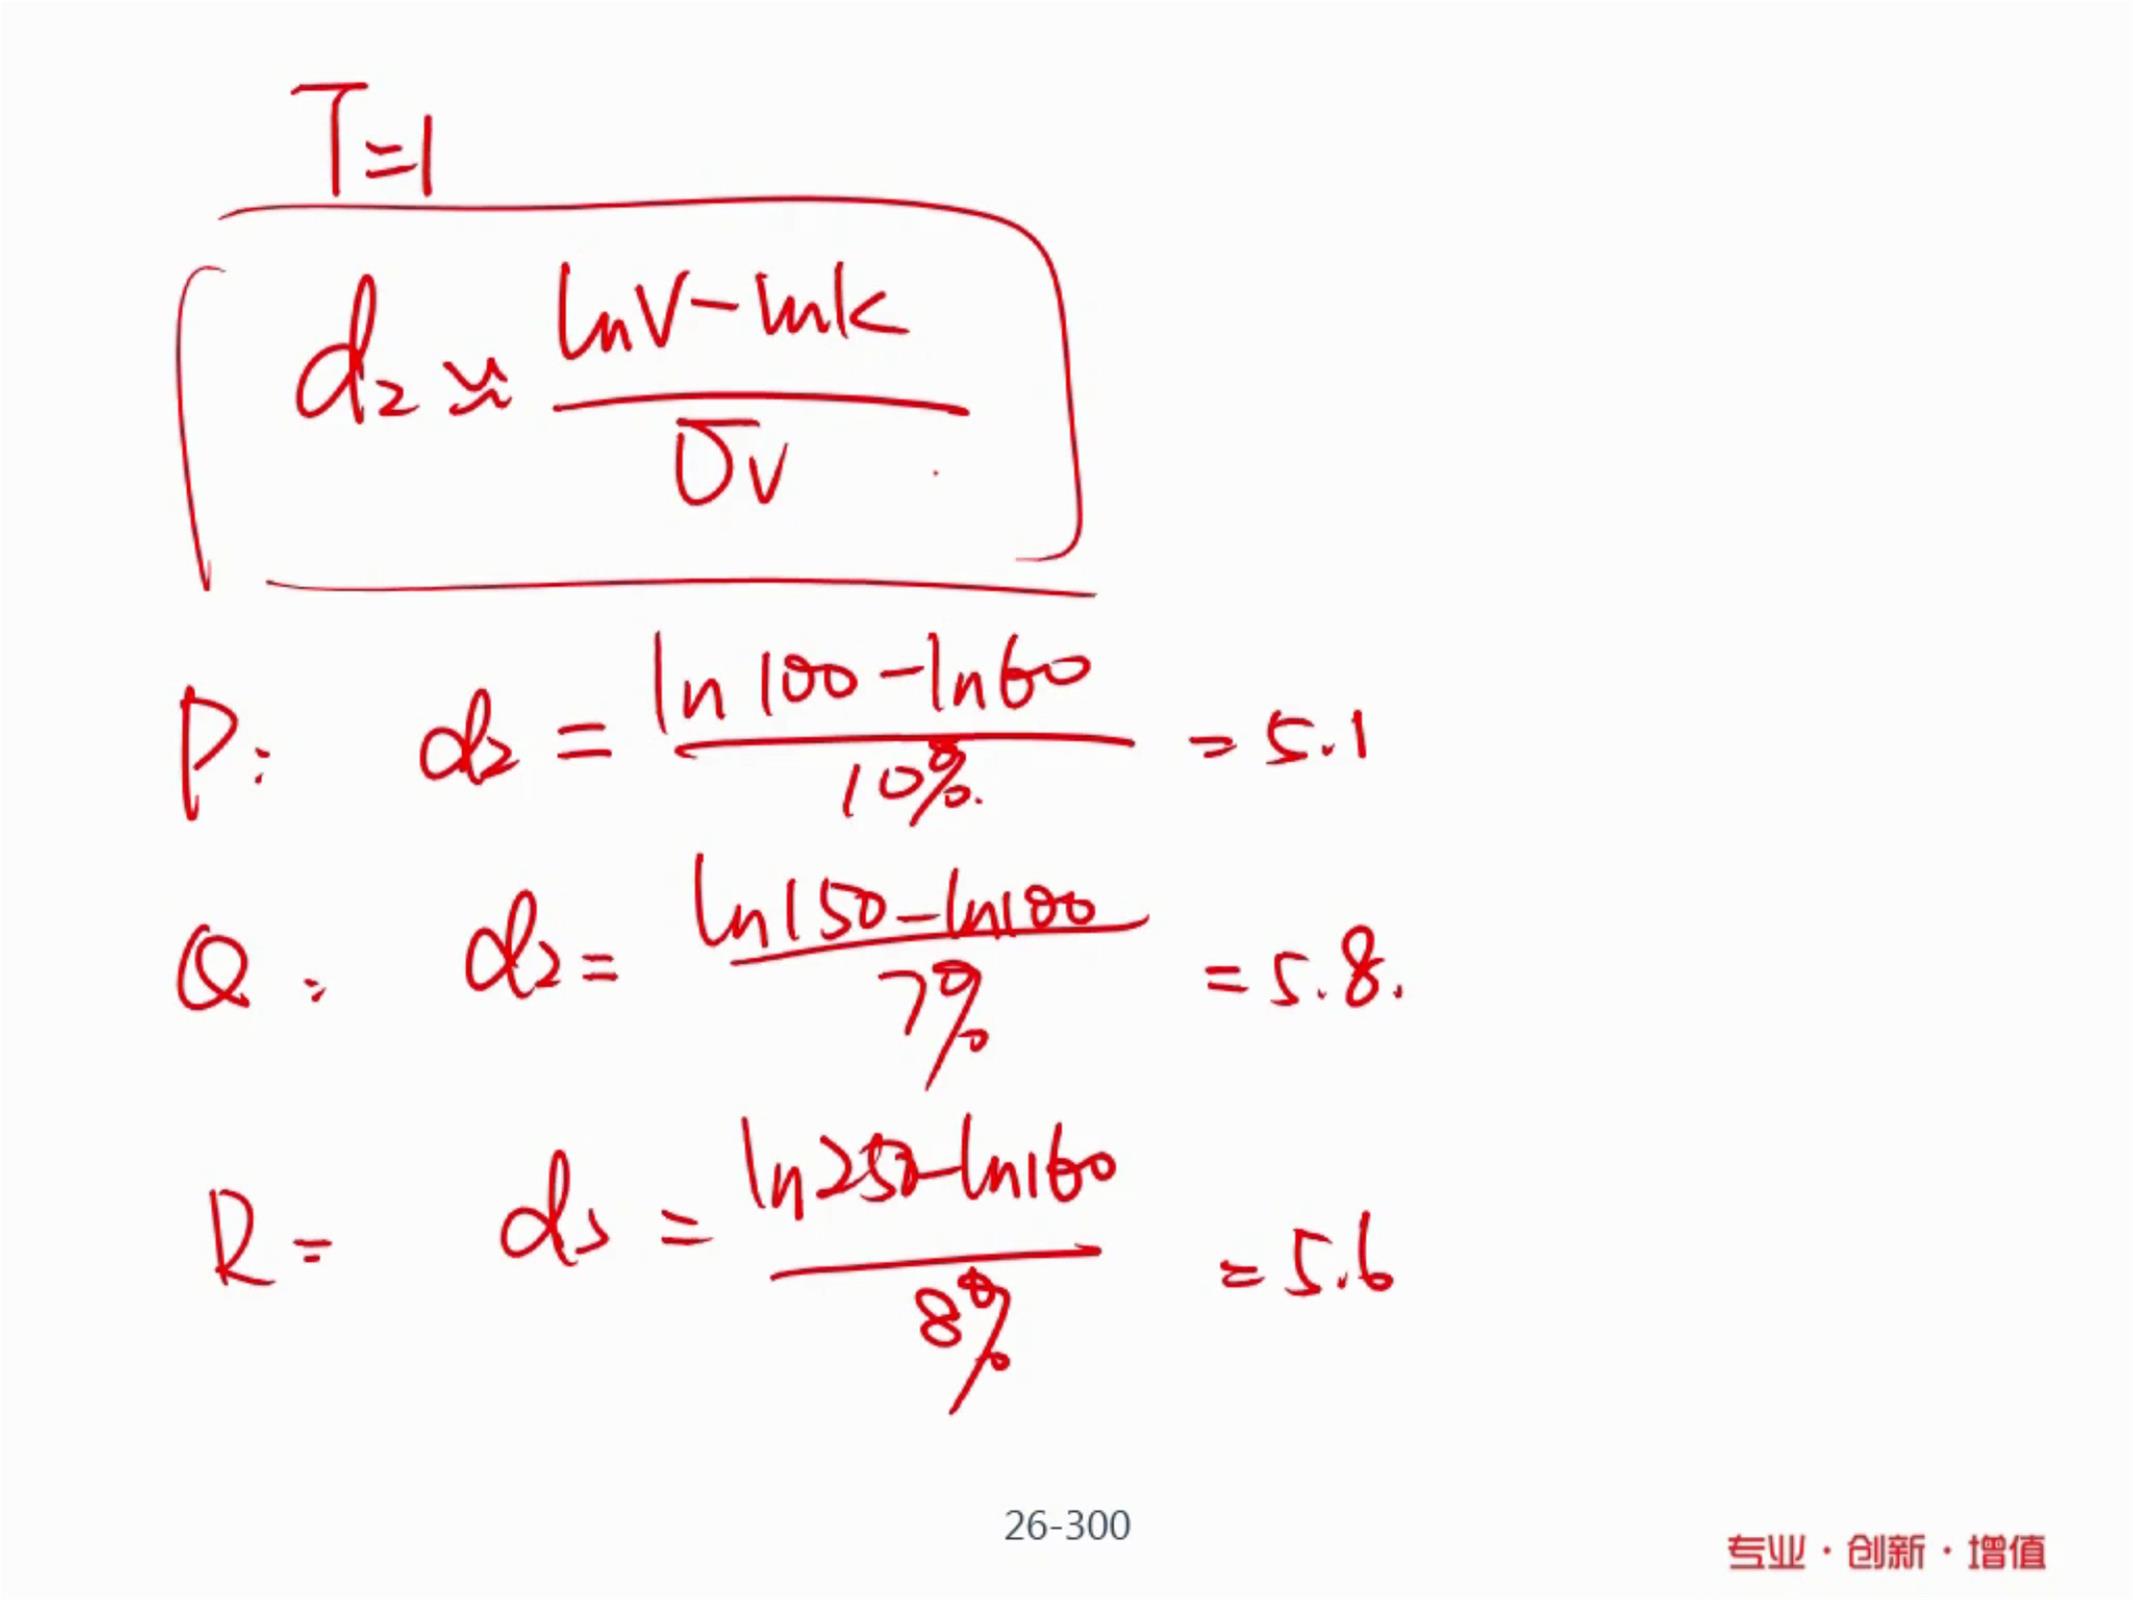 T=1
d₂ ≈ (lnV-lnk)/σv
P: d₂ = (ln100-ln60)/10% = 5.1
Q: d₂ = (ln150-ln100)/7% = 5.8.
R= d₂ = (ln250-ln160)/8% = 5.6
26-300
专业·创新·增值